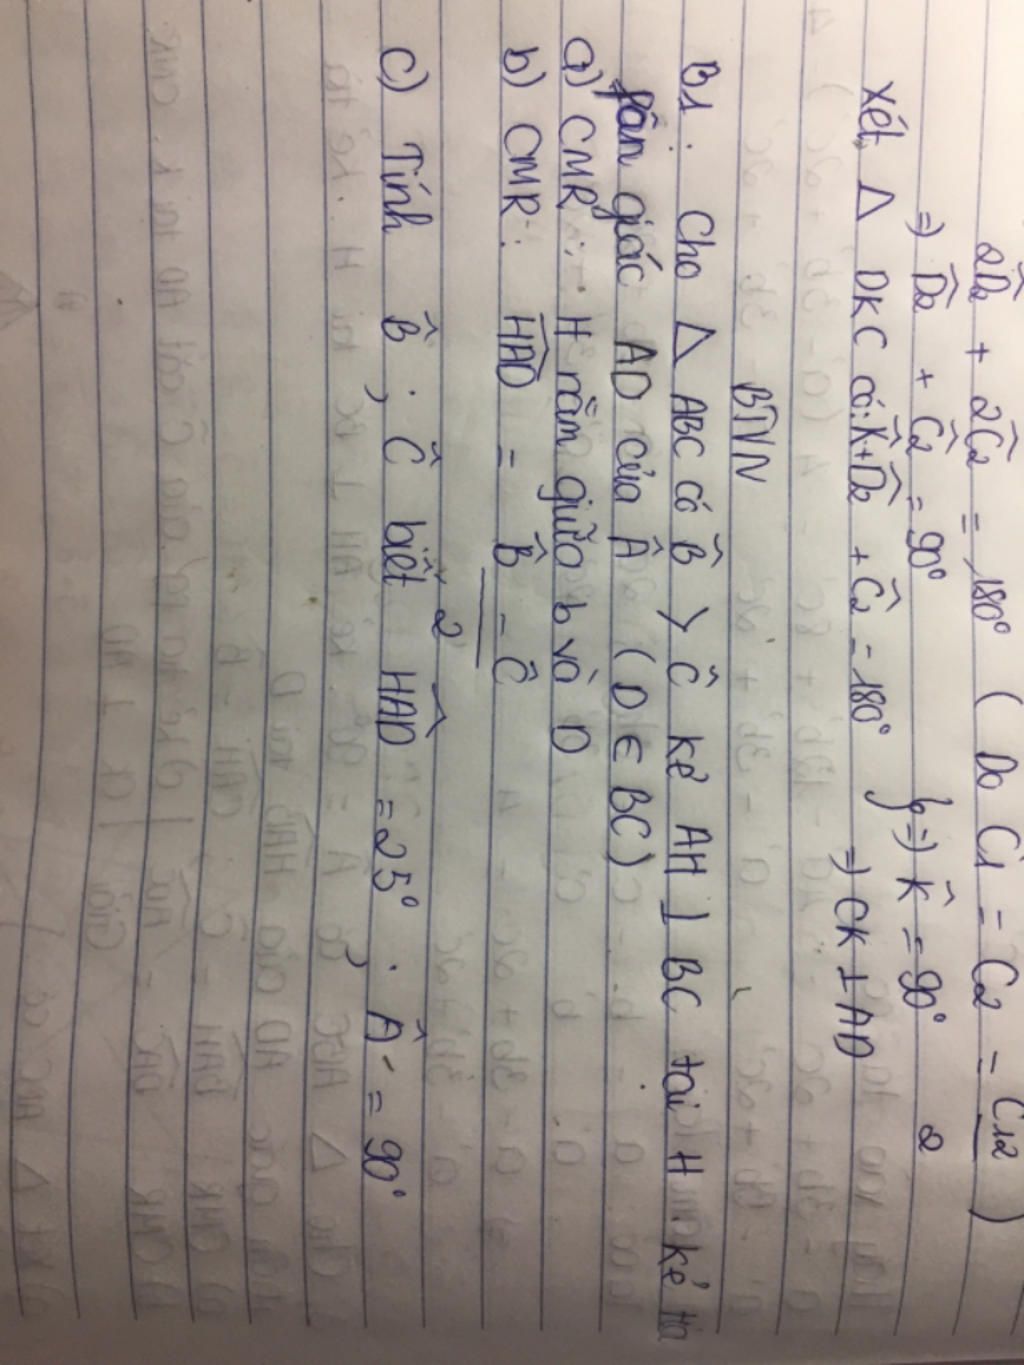 2D̂2 + 2Ĉ2 = 180° ( Do C1 = C2 = C12 / 2 )
=> D̂2 + Ĉ2 = 90°
Xét Δ DKC có: K̂ + D̂2 + Ĉ2 = 180° } => K̂ = 90°
=> CK ⊥ AD
BTVN
B1: Cho Δ ABC có B̂ > Ĉ kẻ AH ⊥ BC tại H kẻ tia
phân giác AD của Â ( D ∈ BC )
a) CMR: H nằm giữa b và D
b) CMR: HAD = B̂ - Ĉ / 2
c) Tính B̂ ; Ĉ biết HAD = 25° ; Â = 90°